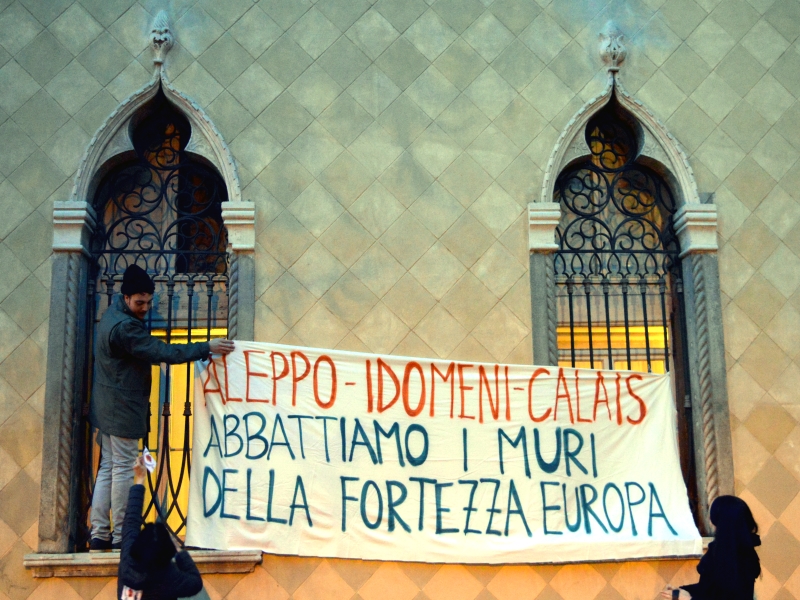 ALEPPO - IDOMENI - CALAIS
ABBATTIAMO I MURI
DELLA FORTEZZA EUROPA